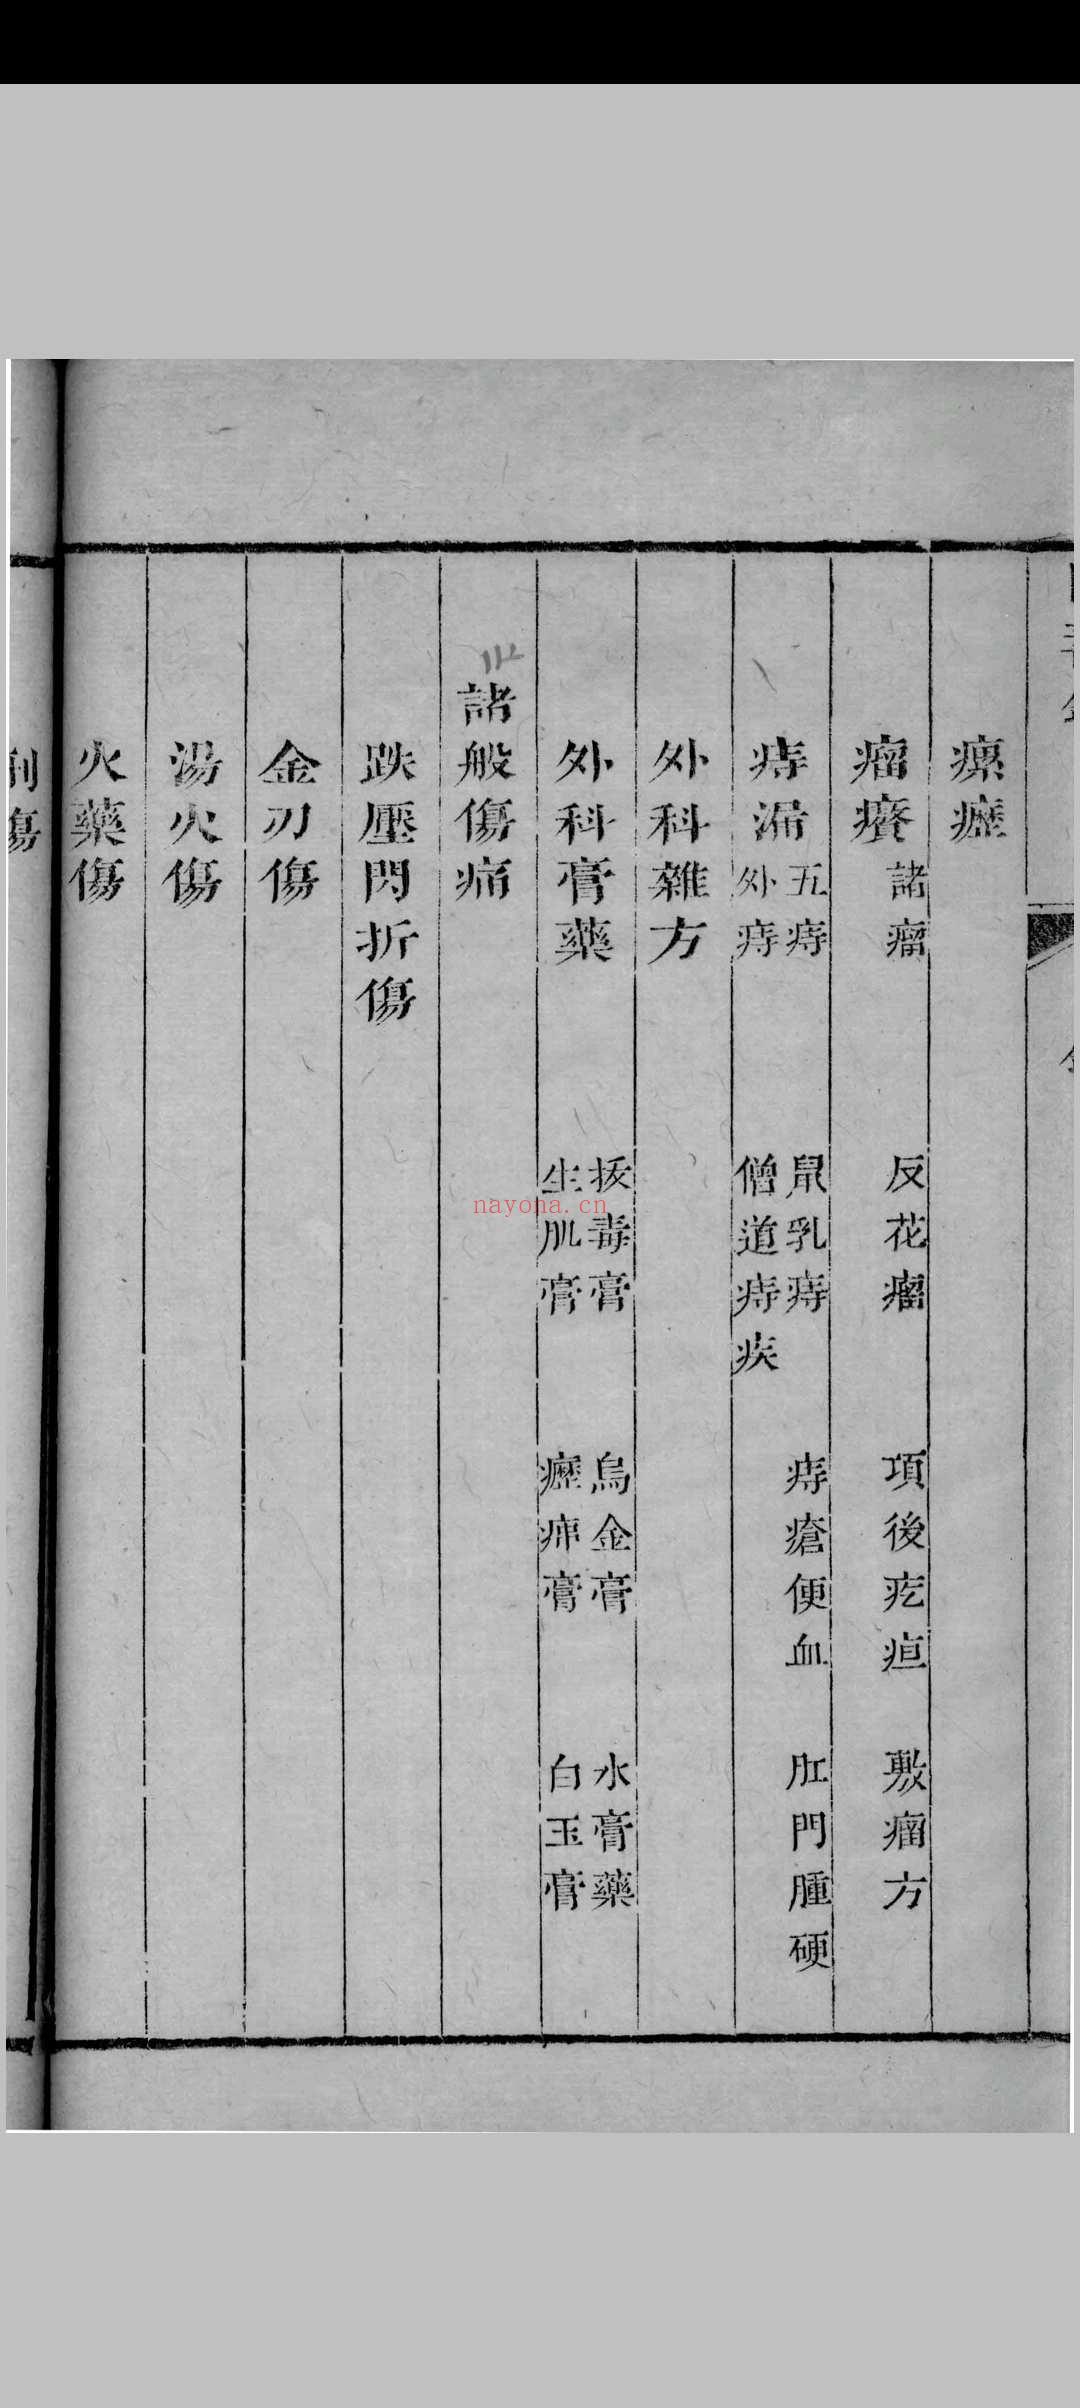 瘰癧
瘤癭 諸瘤 反花瘤 項後疙疸 敷瘤方
痔漏 五痔 鼠乳痔 痔瘡便血 肛門腫硬
外痔 僧道痔疾
外科雜方
外科膏藥 拔毒膏 烏金膏 水膏藥
生肌膏 癧痈膏 白玉膏
諸般傷痛
跌壓閃折傷
金刃傷
湯火傷
火藥傷
nayona.cn